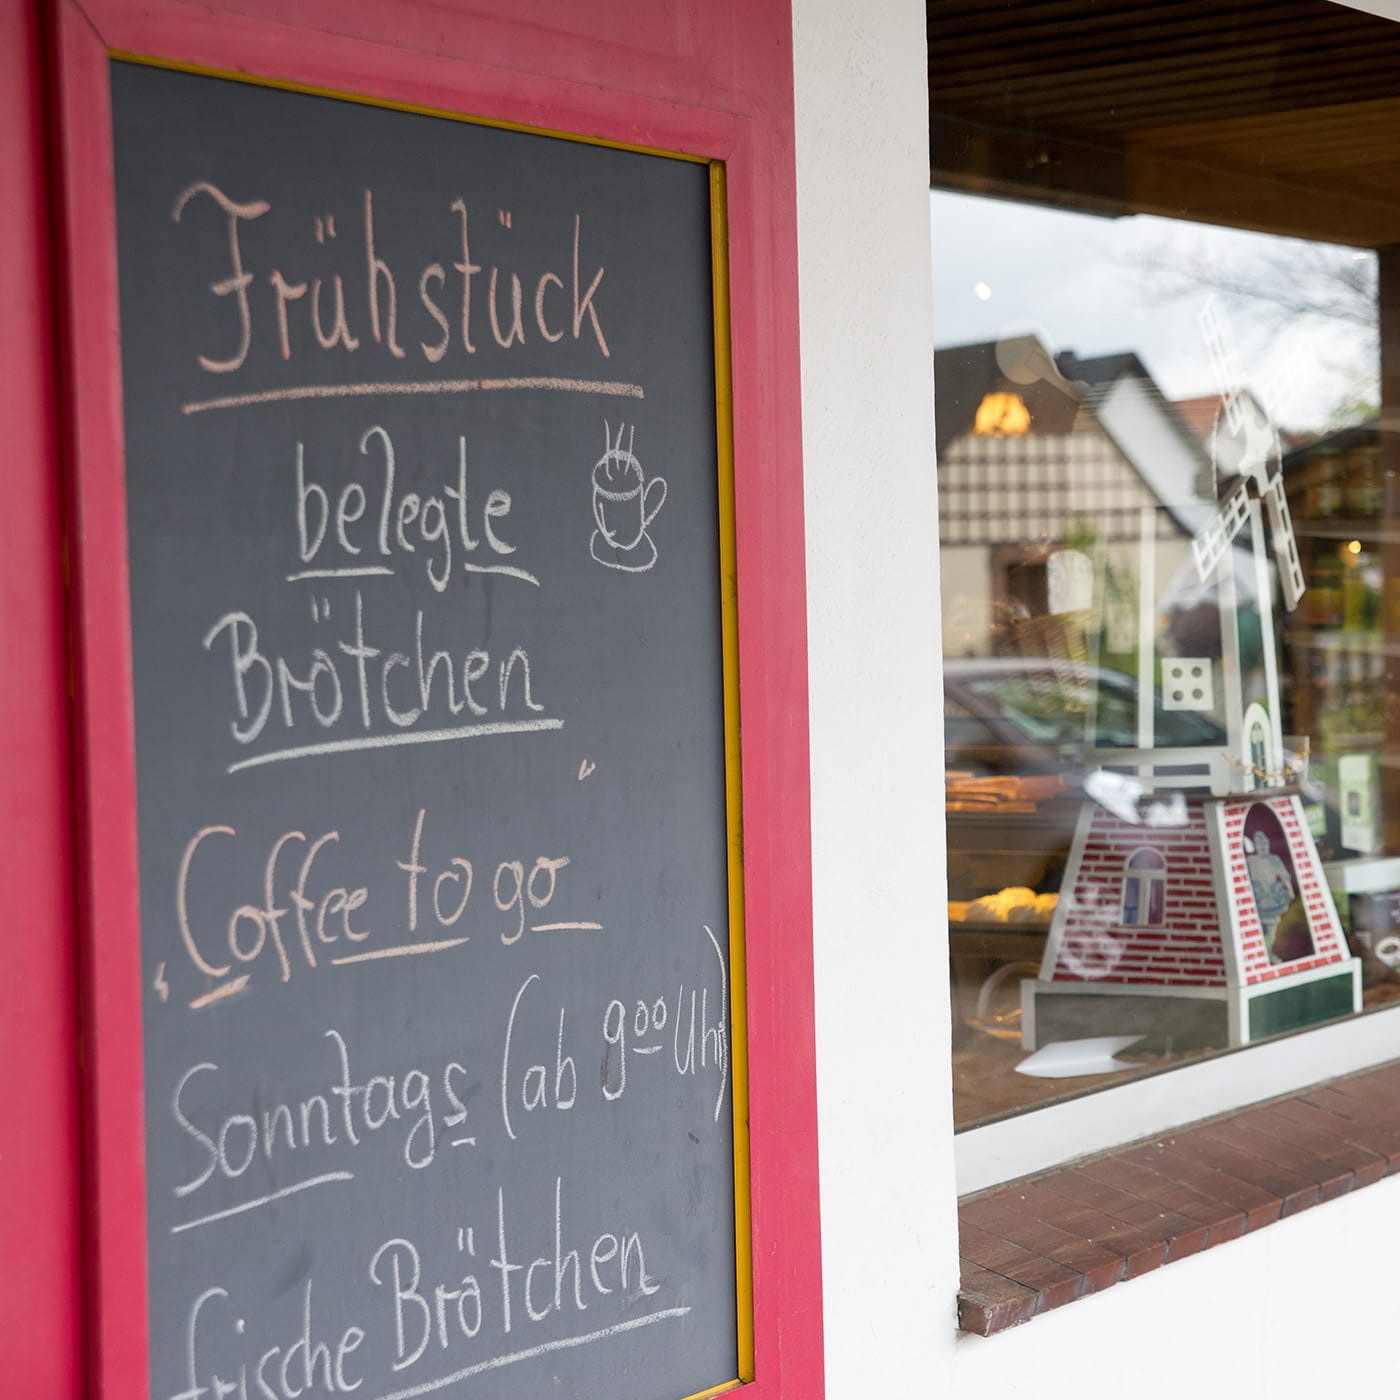 Frühstück
belegte
Brötchen
"Coffee to go"
Sonntags (ab 9⁰⁰ Uhr)
frische Brötchen